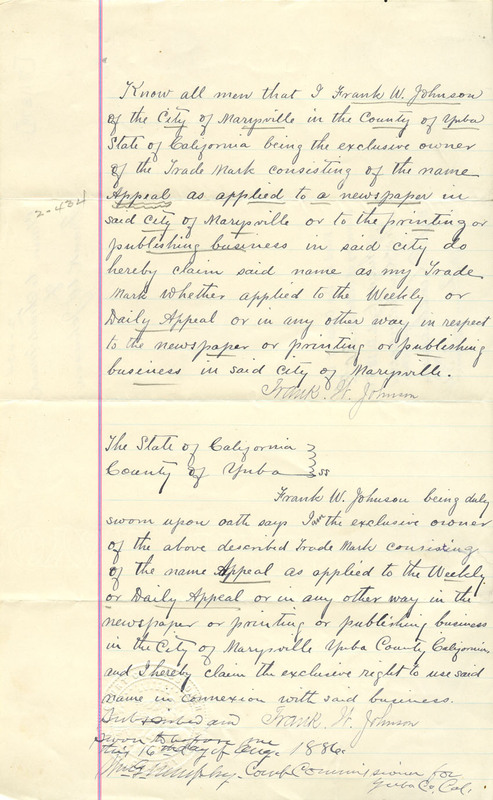 Know all men that I Frank W. Johnson
of the City of Marysville in the County of Yuba
State of California being the exclusive owner
of the Trade Mark consisting of the name
Appeal as applied to a newspaper in
2-434
said city of Marysville or to the printing or
publishing business in said city do
hereby claim said name as my Trade
Mark whether applied to the Weekly or
Daily Appeal or in any other way in respect
to the newspaper or printing or publishing
business in said city of Marysville.
Frank. W. Johnson
The State of California
County of Yuba ss
Frank W. Johnson being duly
sworn upon oath says I am the exclusive owner
of the above described Trade Mark consising
of the name Appeal as applied to the Weekly
or Daily Appeal or in any other way in the
newspaper or printing or publishing business
in the City of Marysville Yuba County California
and I hereby claim the exclusive right to use said
name in connexion with said business.
Subscribed and Frank. W. Johnson
sworn to before me
this 16th day of Aug. 1886.
Court Commissioner for
Yuba Co. Cal.